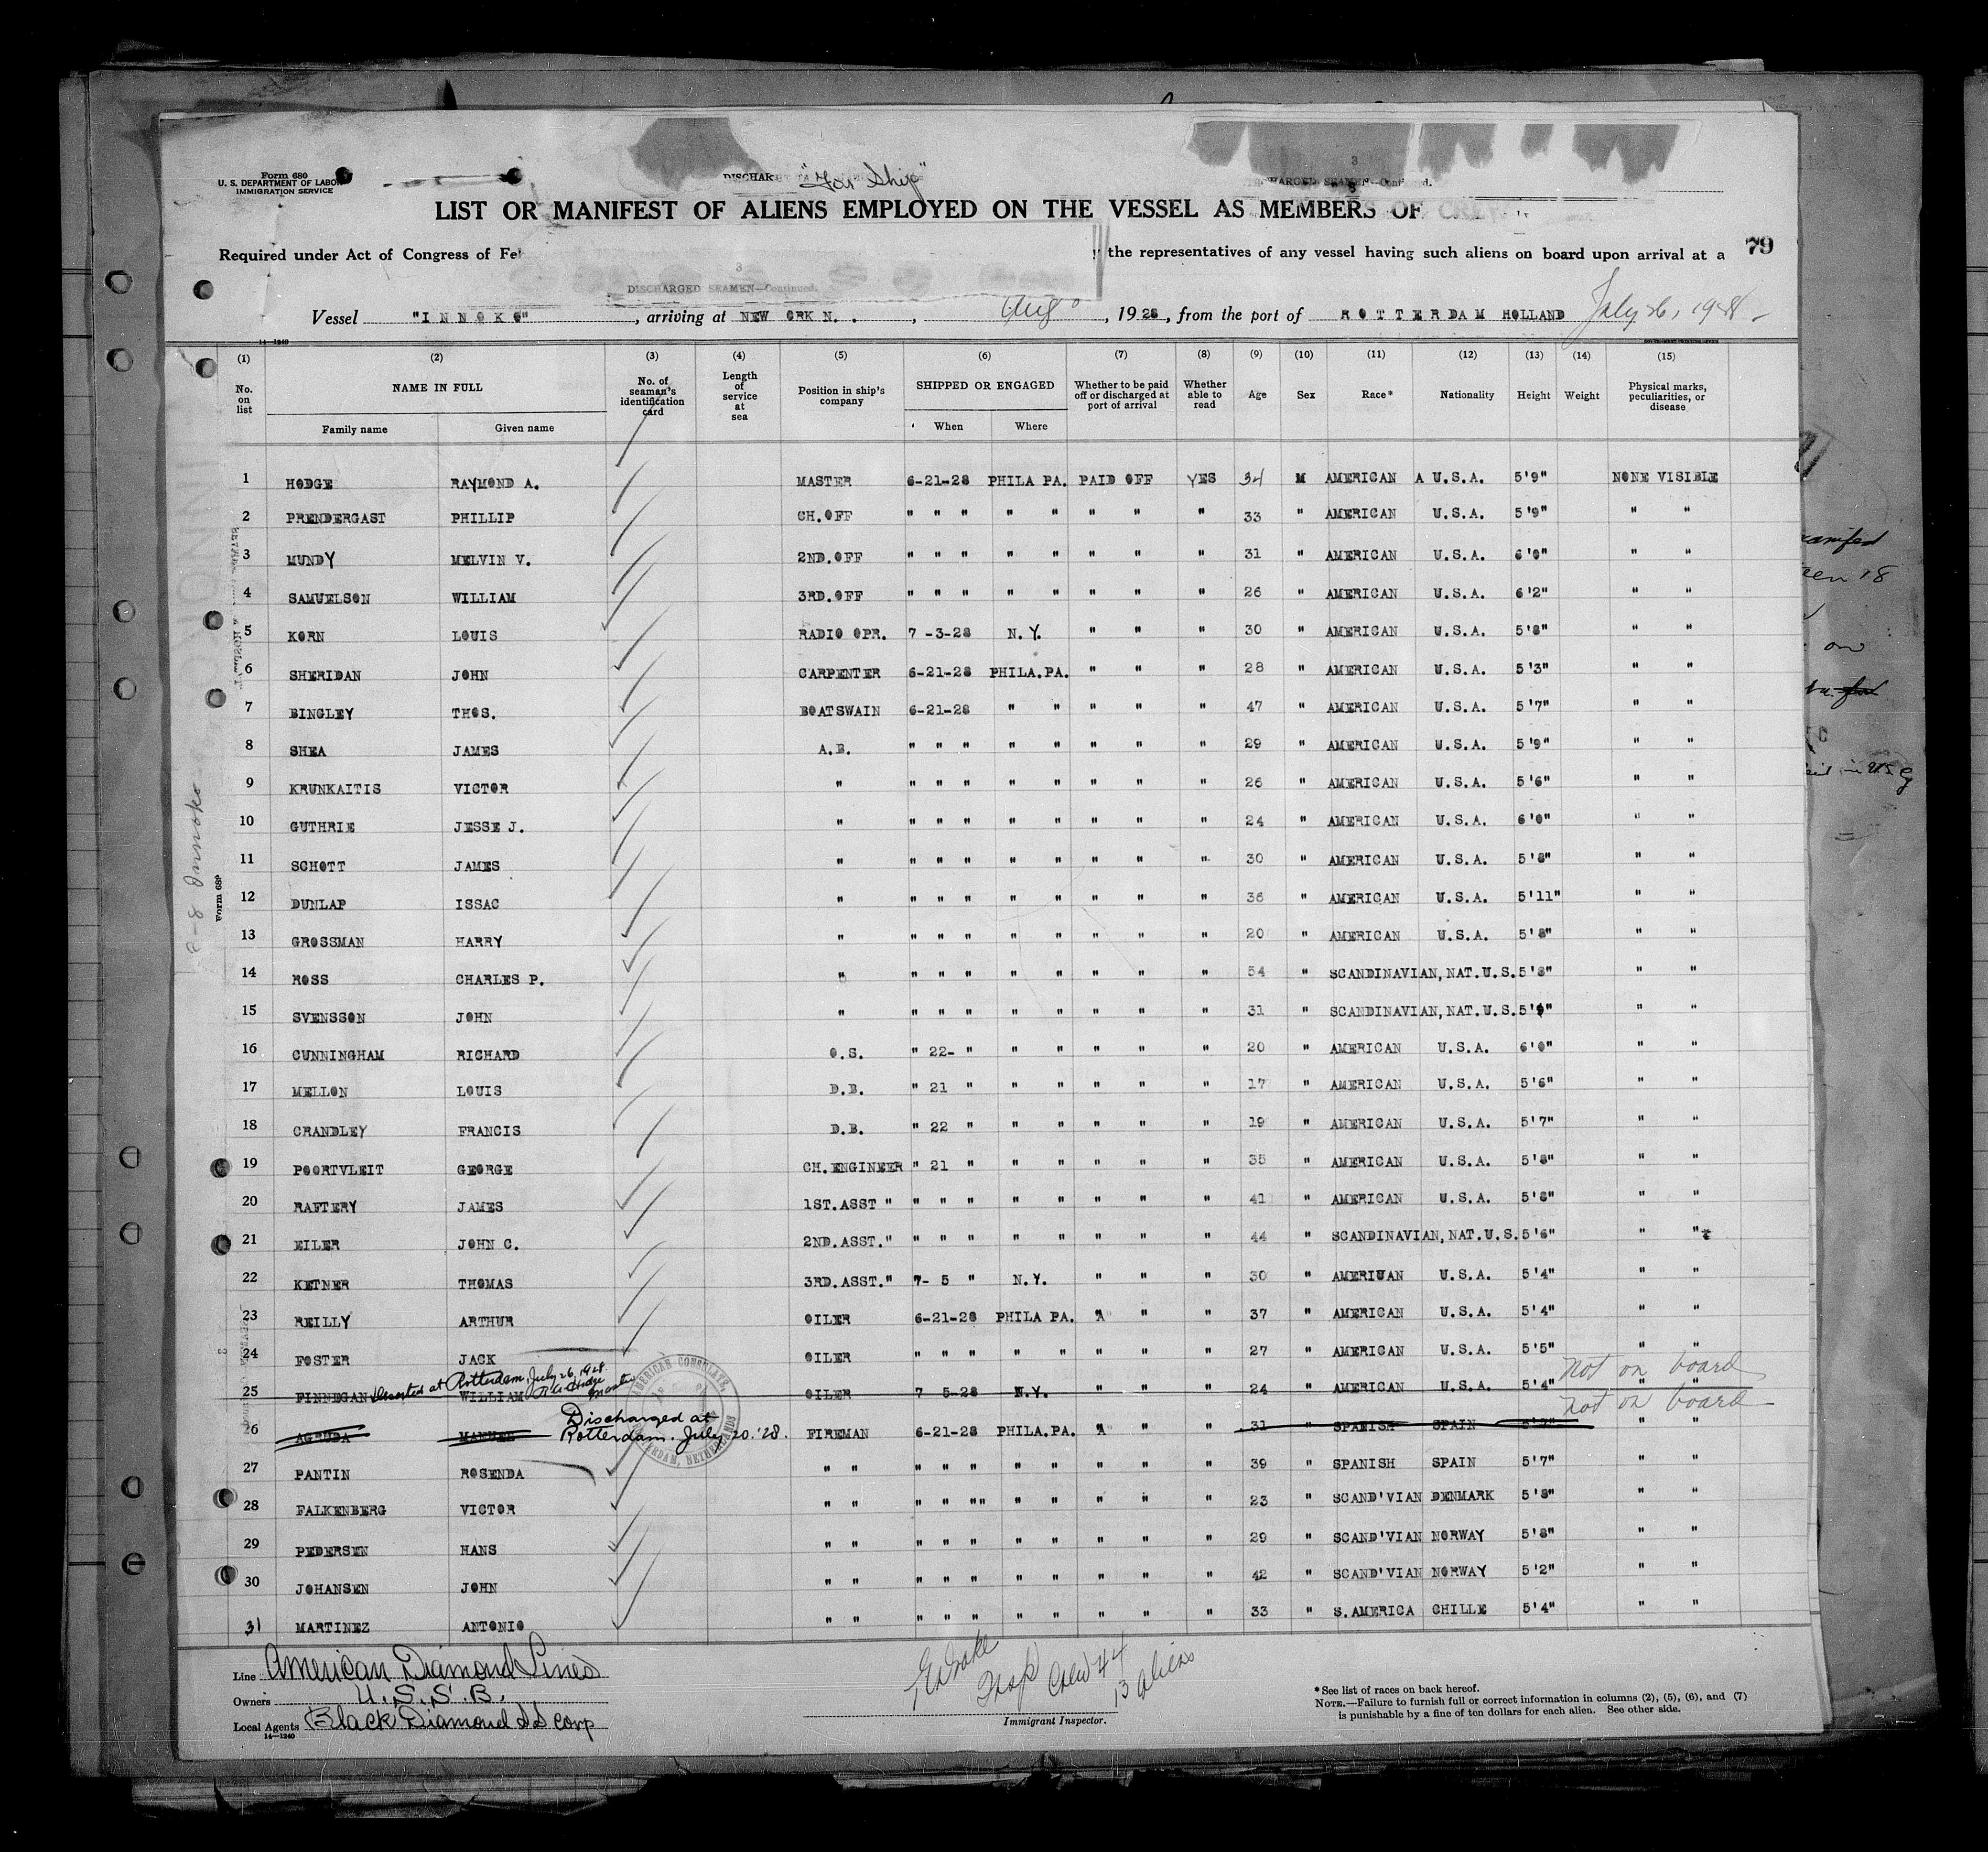 Form 680
U. S. DEPARTMENT OF LABOR
IMMIGRATION SERVICE
"For Ship"
LIST OR MANIFEST OF ALIENS EMPLOYED ON THE VESSEL AS MEMBERS OF CREW
79
Required under Act of Congress of Feb the representatives of any vessel having such aliens on board upon arrival at a
DISCHARGED SEAMEN—Continued.
Vessel "INNOKO", arriving at NEW ORK N. ., Aug, 1928, from the port of ROTTERDAM HOLLAND July 26, 1928
(1) (2) (3) (4) (5) (6) (7) (8) (9) (10) (11) (12) (13) (14) (15)
No. on list NAME IN FULL Family name Given name No. of seaman's identification card Length of service at sea Position in ship's company SHIPPED OR ENGAGED When Where Whether to be paid off or discharged at port of arrival Whether able to read Age Sex Race* Nationality Height Weight Physical marks, peculiarities, or disease
1 HODGE RAYMOND A. MASTER 6-21-28 PHILA PA. PAID OFF YES 34 M AMERICAN A U.S.A. 5'9" NONE VISIBLE
2 PRENDERGAST PHILLIP CH.OFF " " " " " " " " 33 " AMERICAN U.S.A. 5'9" " "
3 MUNDY MELVIN V. 2ND.OFF " " " " " " " " 31 " AMERICAN U.S.A. 6'0" " "
4 SAMUELSON WILLIAM 3RD.OFF " " " " " " " " 26 " AMERICAN U.S.A. 6'2" " "
5 KORN LOUIS RADIO OPR. 7-3-28 N.Y. " " " 30 " AMERICAN U.S.A. 5'8" " "
6 SHERIDAN JOHN CARPENTER 6-21-28 PHILA.PA. " " " 28 " AMERICAN U.S.A. 5'3" " "
7 BINGLEY THOS. BOATSWAIN 6-21-28 " " " " " 47 " AMERICAN U.S.A. 5'7" " "
8 SHEA JAMES A.B. " " " " " " " " 29 " AMERICAN U.S.A. 5'9" " "
9 KRUNKAITIS VICTOR " " " " " " " " " 26 " AMERICAN U.S.A. 5'6" " "
10 GUTHRIE JESSE J. " " " " " " " " " 24 " AMERICAN U.S.A. 6'0" " "
11 SCHOTT JAMES " " " " " " " " " 30 " AMERICAN U.S.A. 5'8" " "
12 DUNLAP ISSAC " " " " " " " " " 36 " AMERICAN U.S.A. 5'11" " "
13 GROSSMAN HARRY " " " " " " " " " 20 " AMERICAN U.S.A. 5'8" " "
14 ROSS CHARLES P. " " " " " " " " " 54 " SCANDINAVIAN, NAT.U.S. 5'8" " "
15 SVENSSON JOHN " " " " " " " " " 31 " SCANDINAVIAN, NAT.U.S. 5'9" " "
16 CUNNINGHAM RICHARD O.S. " 22- " " " " " " 20 " AMERICAN U.S.A. 6'0" " "
17 MELLON LOUIS D.B. " 21 " " " " " " 17 " AMERICAN U.S.A. 5'6" " "
18 CRANDLEY FRANCIS D.B. " 22 " " " " " " 19 " AMERICAN U.S.A. 5'7" " "
19 POORTVLEIT GEORGE CH.ENGINEER " 21 " " " " " " 35 " AMERICAN U.S.A. 5'8" " "
20 RAFTERY JAMES 1ST.ASST " " " " " " " " " 41 " AMERICAN U.S.A. 5'8" " "
21 EILER JOHN C. 2ND.ASST." " " " " " " " " 44 " SCANDINAVIAN, NAT.U.S. 5'6" " "
22 KETNER THOMAS 3RD.ASST." 7- 5 " N.Y. " " " 30 " AMERIUAN U.S.A. 5'4" " "
23 REILLY ARTHUR OILER 6-21-28 PHILA PA. " " " 37 " AMERICAN U.S.A. 5'4" " "
24 FOSTER JACK OILER " " " " " " " " 27 " AMERICAN U.S.A. 5'5" " "
Deserted at Rotterdam, July 26, 1928. R.A. Hodge Master
not on board
25 FINNEGAN WILLIAM OILER 7 5-28 N.Y. " " " 24 " AMERICAN U.S.A. 5'4" " "
Discharged at Rotterdam. July 20. '28.
not on board
26 AGRUDA MANUEL FIREMAN 6-21-28 PHILA.PA. " " " 31 " SPANISH SPAIN " "
AMERICAN CONSULATE, ROTTERDAM, NETHERLANDS
27 PANTIN ROSENDA " " " " " " " " " " 39 " SPANISH SPAIN 5'7" " "
28 FALKENBERG VICTOR " " " " "" " " " " " 23 " SCAND'VIAN DENMARK 5'8" " "
29 PEDERSEN HANS " " " " " " " " " " 29 " SCAND'VIAN NORWAY 5'8" " "
30 JOHANSEN JOHN " " " " " " " " " " 42 " SCAND'VIAN NORWAY 5'2" " "
31 MARTINEZ ANTONIO " " " " " " " " " " 33 " S.AMERICA CHILLE 5'4" " "
Line American Diamond Lines
Owners U.S.S.B.
Local Agents Black Diamond SS Corp
14—1240
Crew 44
13 aliens
Immigrant Inspector.
*See list of races on back hereof.
NOTE.—Failure to furnish full or correct information in columns (2), (5), (6), and (7)
is punishable by a fine of ten dollars for each alien. See other side.
Form 689
8-8 Innoko